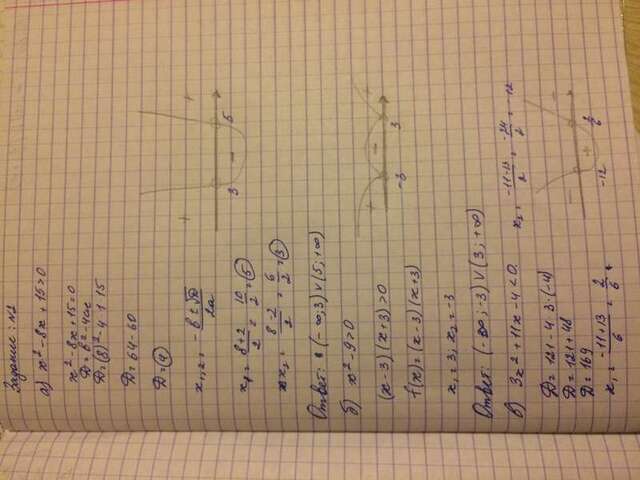 Задание: №1
а) x² - 8x + 15 > 0
x² - 8x + 15 = 0
D = b² - 4ac
D = (8)² - 4 · 1 · 15
D = 64 - 60
D = 4
x₁,₂ = (-b ± √D)/2a
x₁ = (8+2)/2 = 10/2 = 5
x₂ = (8-2)/2 = 6/2 = 3
+ - +
3 5
Ответ: (-∞; 3) ∨ (5; +∞)
б) x² - 9 > 0
(x-3)(x+3) > 0
f(x) = (x-3)(x+3)
x₁ = 3, x₂ = -3
+ - +
-3 3
Ответ: (-∞; -3) ∨ (3; +∞)
в) 3x² + 11x - 4 < 0
D = 121 - 4 · 3 · (-4)
D = 121 + 48
D = 169
x₁ = (-11+13)/6 = 2/6
x₂ = (-11-13)/2 = -24/2 = -12
- +
-12 2/6